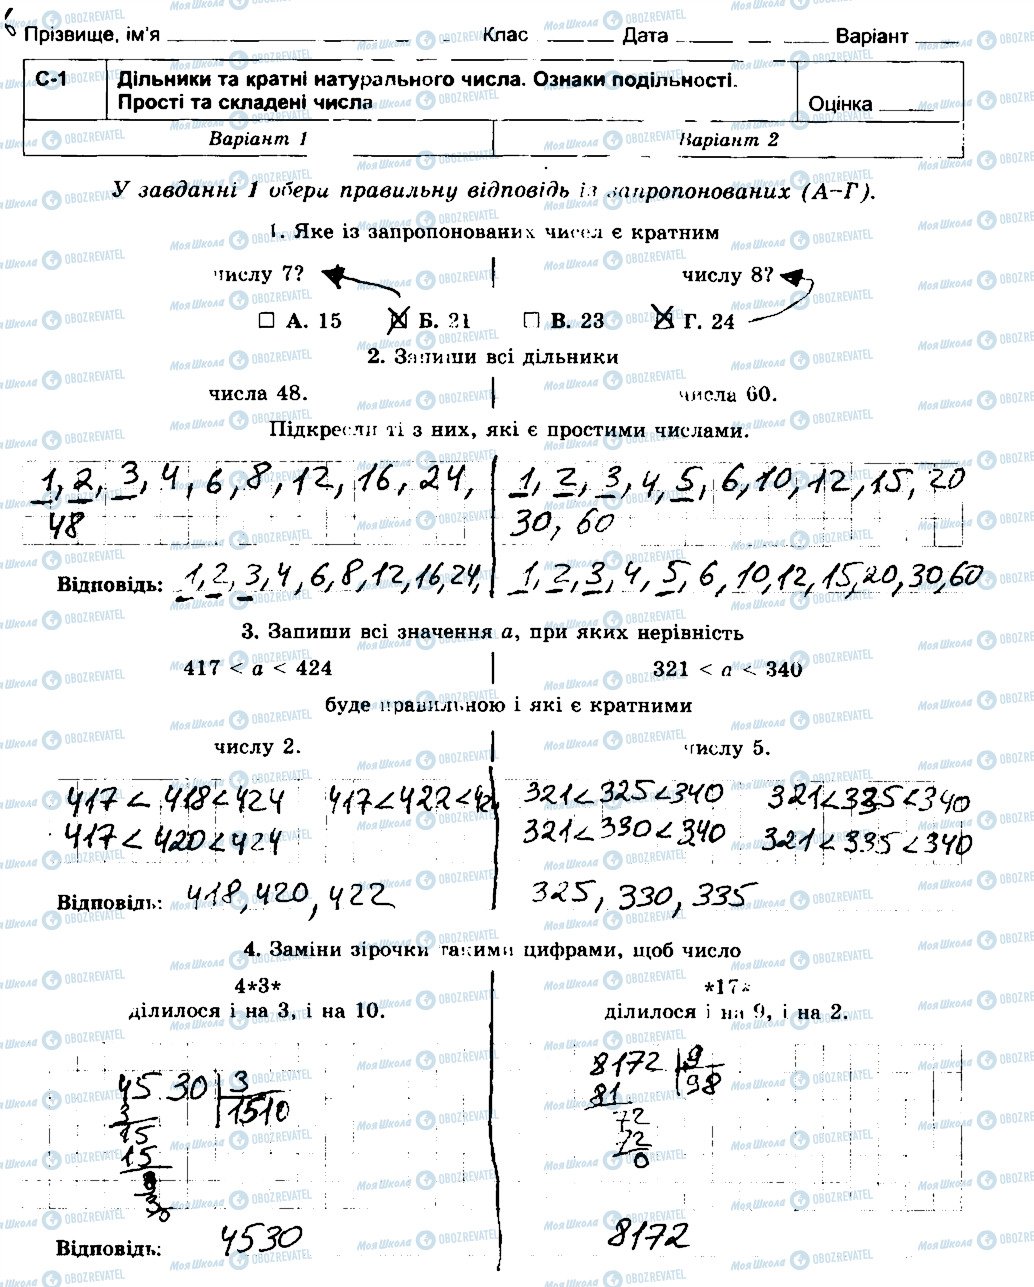 Прізвище, ім'я Клас Дата Варіант
С-1 Дільники та кратні натурального числа. Ознаки подільності.
Прості та складені числа Оцінка
Варіант 1 Варіант 2
У завданні 1 обери правильну відповідь із запропонованих (А–Г).
1. Яке із запропонованих чисел є кратним
числу 7? числу 8?
А. 15 Б. 21 В. 23 Г. 24
2. Запиши всі дільники
числа 48. числа 60.
Підкресли ті з них, які є простими числами.
1, 2, 3, 4, 6, 8, 12, 16, 24, 1, 2, 3, 4, 5, 6, 10, 12, 15, 20
48 30, 60
Відповідь: 1, 2, 3, 4, 6, 8, 12, 16, 24, 1, 2, 3, 4, 5, 6, 10, 12, 15, 20, 30, 60
3. Запиши всі значення a, при яких нерівність
417 < a < 424 321 < a < 340
буде правильною і які є кратними
числу 2. числу 5.
417 < 418 < 424 417 < 422 < 424 321 < 325 < 340 321 < 335 < 340
417 < 420 < 424 321 < 330 < 340 321 < 335 < 340
Відповідь: 418, 420, 422 325, 330, 335
4. Заміни зірочки такими цифрами, щоб число
4*3* *17*
ділилося і на 3, і на 10. ділилося і на 9, і на 2.
4530 3 8172 9
3 1510 81 98
15 72
15 72
3 0
3
0
Відповідь: 4530 8172